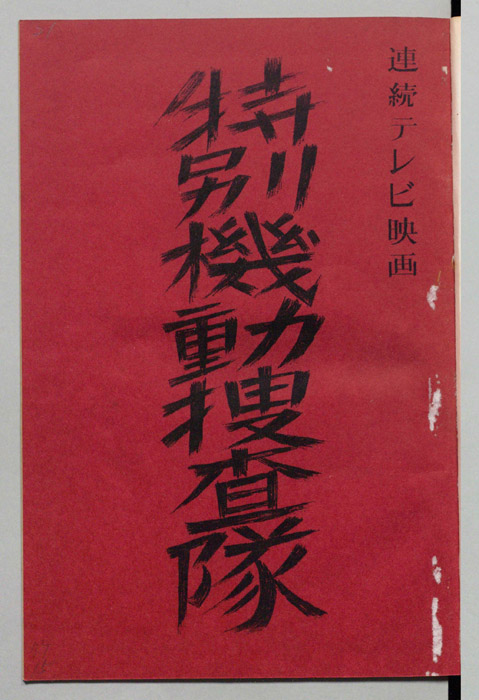 連続テレビ映画
特別機動捜査隊